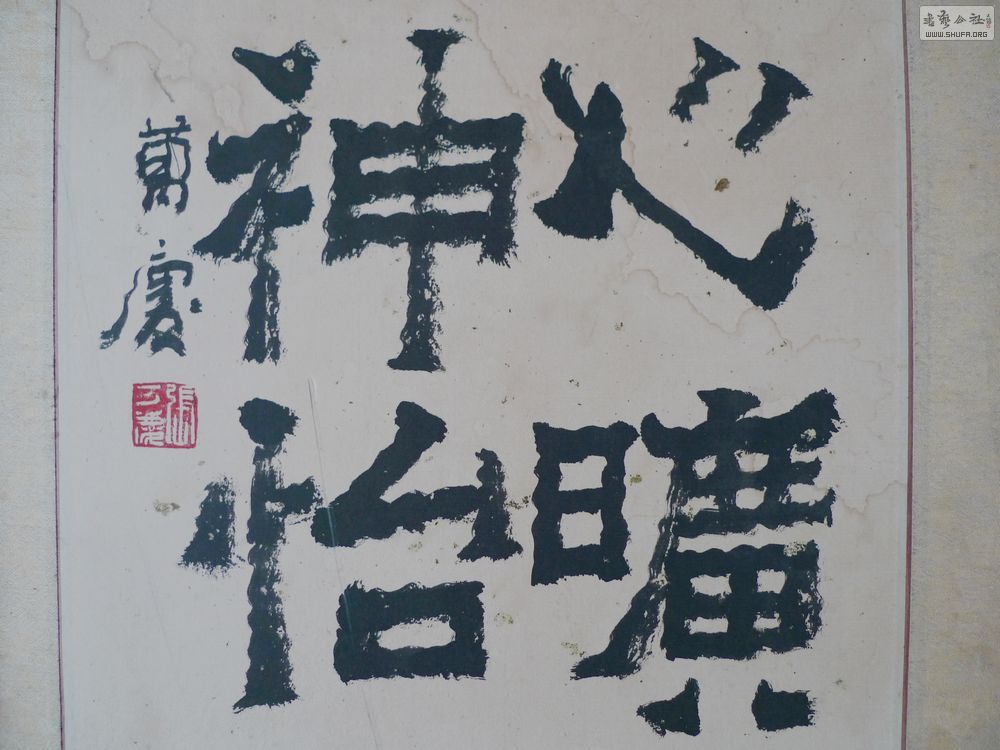 心曠
神怡
萬慶
書藝公社
WWW.SHUFA.ORG